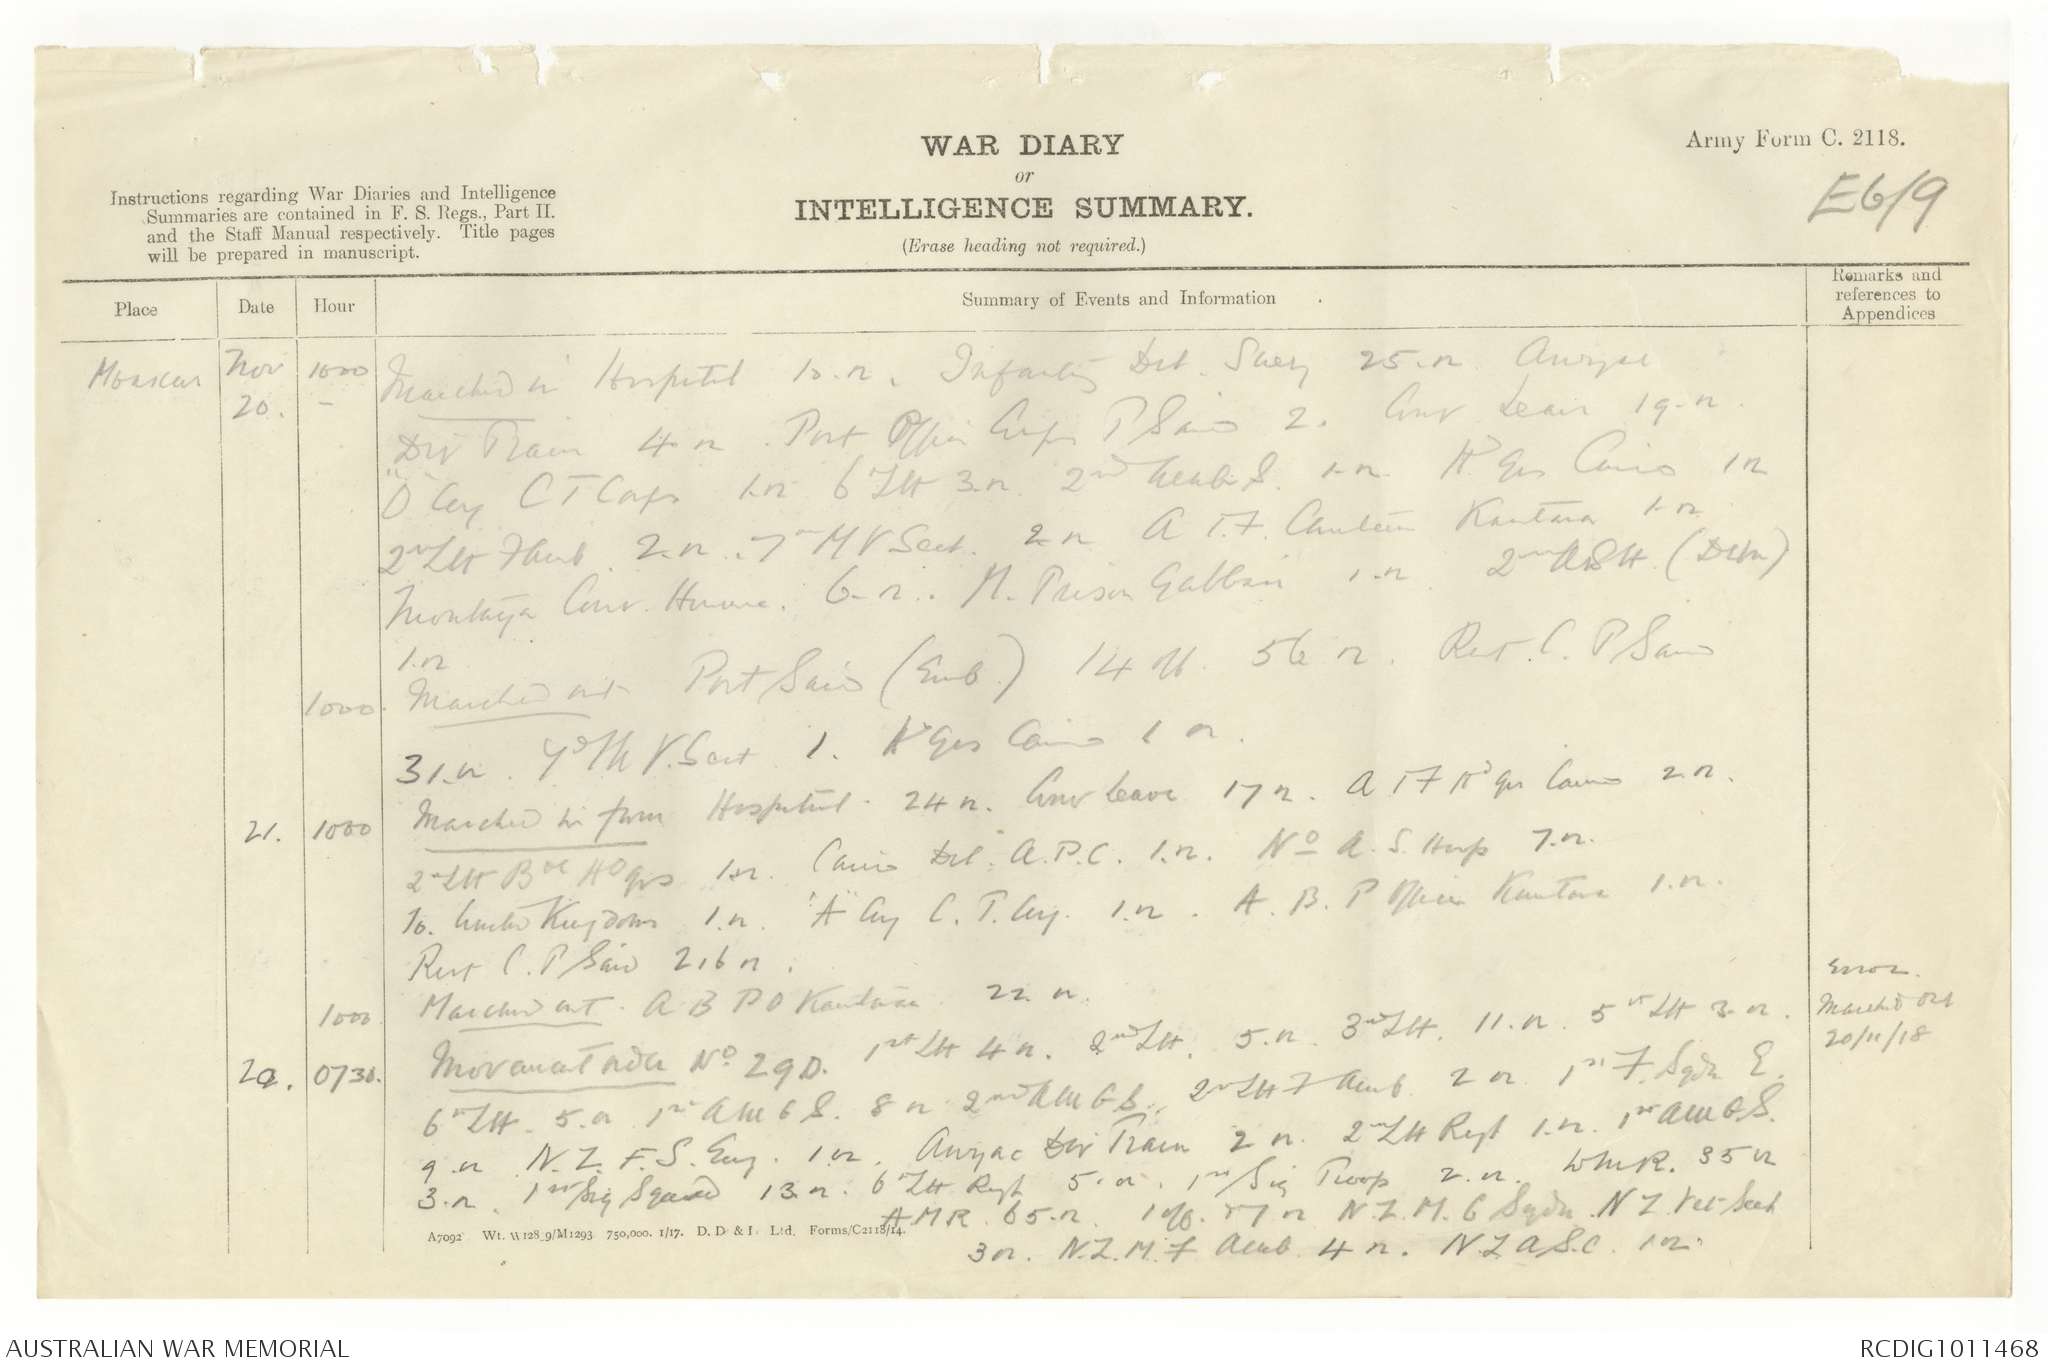 WAR DIARY
or
INTELLIGENCE SUMMARY.
(Erase heading not required.)
Army Form C. 2118.
E6/9
Instructions regarding War Diaries and Intelligence
Summaries are contained in F. S. Regs., Part II.
and the Staff Manual respectively. Title pages
will be prepared in manuscript.
Place
Date
Hour
Summary of Events and Information
Remarks and
references to
Appendices
Moascar Nov 1000 Marched in Hospital 10.n. Infantry Det. Suez 25.n. Anzac
20. - Div Train 4 n. Port Office P Said 2. Leave 19.n.
"O" Coy C T Corps 1.n 6th LH 3.n. 2nd S. 1.n. Hd Qrs Cairo 1 n
2nd LH F Amb. 2.n. 7th M V Sect. 2.n A I F. Canteen Kantara 1.n
Montaza Conv. Home. 6.n. M. Prison Gabbari 1.n 2nd A S H. (Detn)
1.n
1000. Marched out Port Said (Emb.) 14 off. 56 n. Rest. C. P Said
31.n. V. Sect 1. Hd Qrs Cairo 1 n.
21. 1000 Marched in from Hospital. 24 n. leave 17 n. A I F Hd Qrs Cairo 2.n.
2nd LH Bde Hd Qrs 1.n. Cairo Det. A.P.C. 1.n. No A. S. Hosp 7.n.
Kingdom 1.n. "A" Coy C. T. 1.n. A. B. P Office Kantara 1.n.
Rest C. P Said 216 n.
1000 Marched out. A B P O Kantara. 22. n.
Error.
Marched Out
20/11/18
22. 0730. Movement order No. 29D. 1st LH 4 n. 2nd LH. 5.n. 3rd LH. 11.n. 5th LH 3.n.
6th LH. 5.n. 1st A M G S. 8 n 2nd A M G S. 2nd LH F Amb. 2 n. 1st F. Sqdn E.
9.n N.Z. F. S. Eng. 1.n. Anzac Div Train 2 n. 2nd LH Regt 1.n. 1st A M G S.
3.n. 1st Sig Squad 13.n. 6th LH Regt 5.n. 1st Sig Troop 2.n. W M R. 35 n
A M R. 65.n. 1 off. 57 n N.Z. M. G Sqdn. N Z Vet Sect
3 n. N.Z. M. F Amb. 4 n. N Z A S.C. 1 n.
A7092 Wt. W128 9/M1293 750,000. 1/17. D. D & L. Ltd. Forms/C2118/14.
AUSTRALIAN WAR MEMORIAL
RCDIG1011468